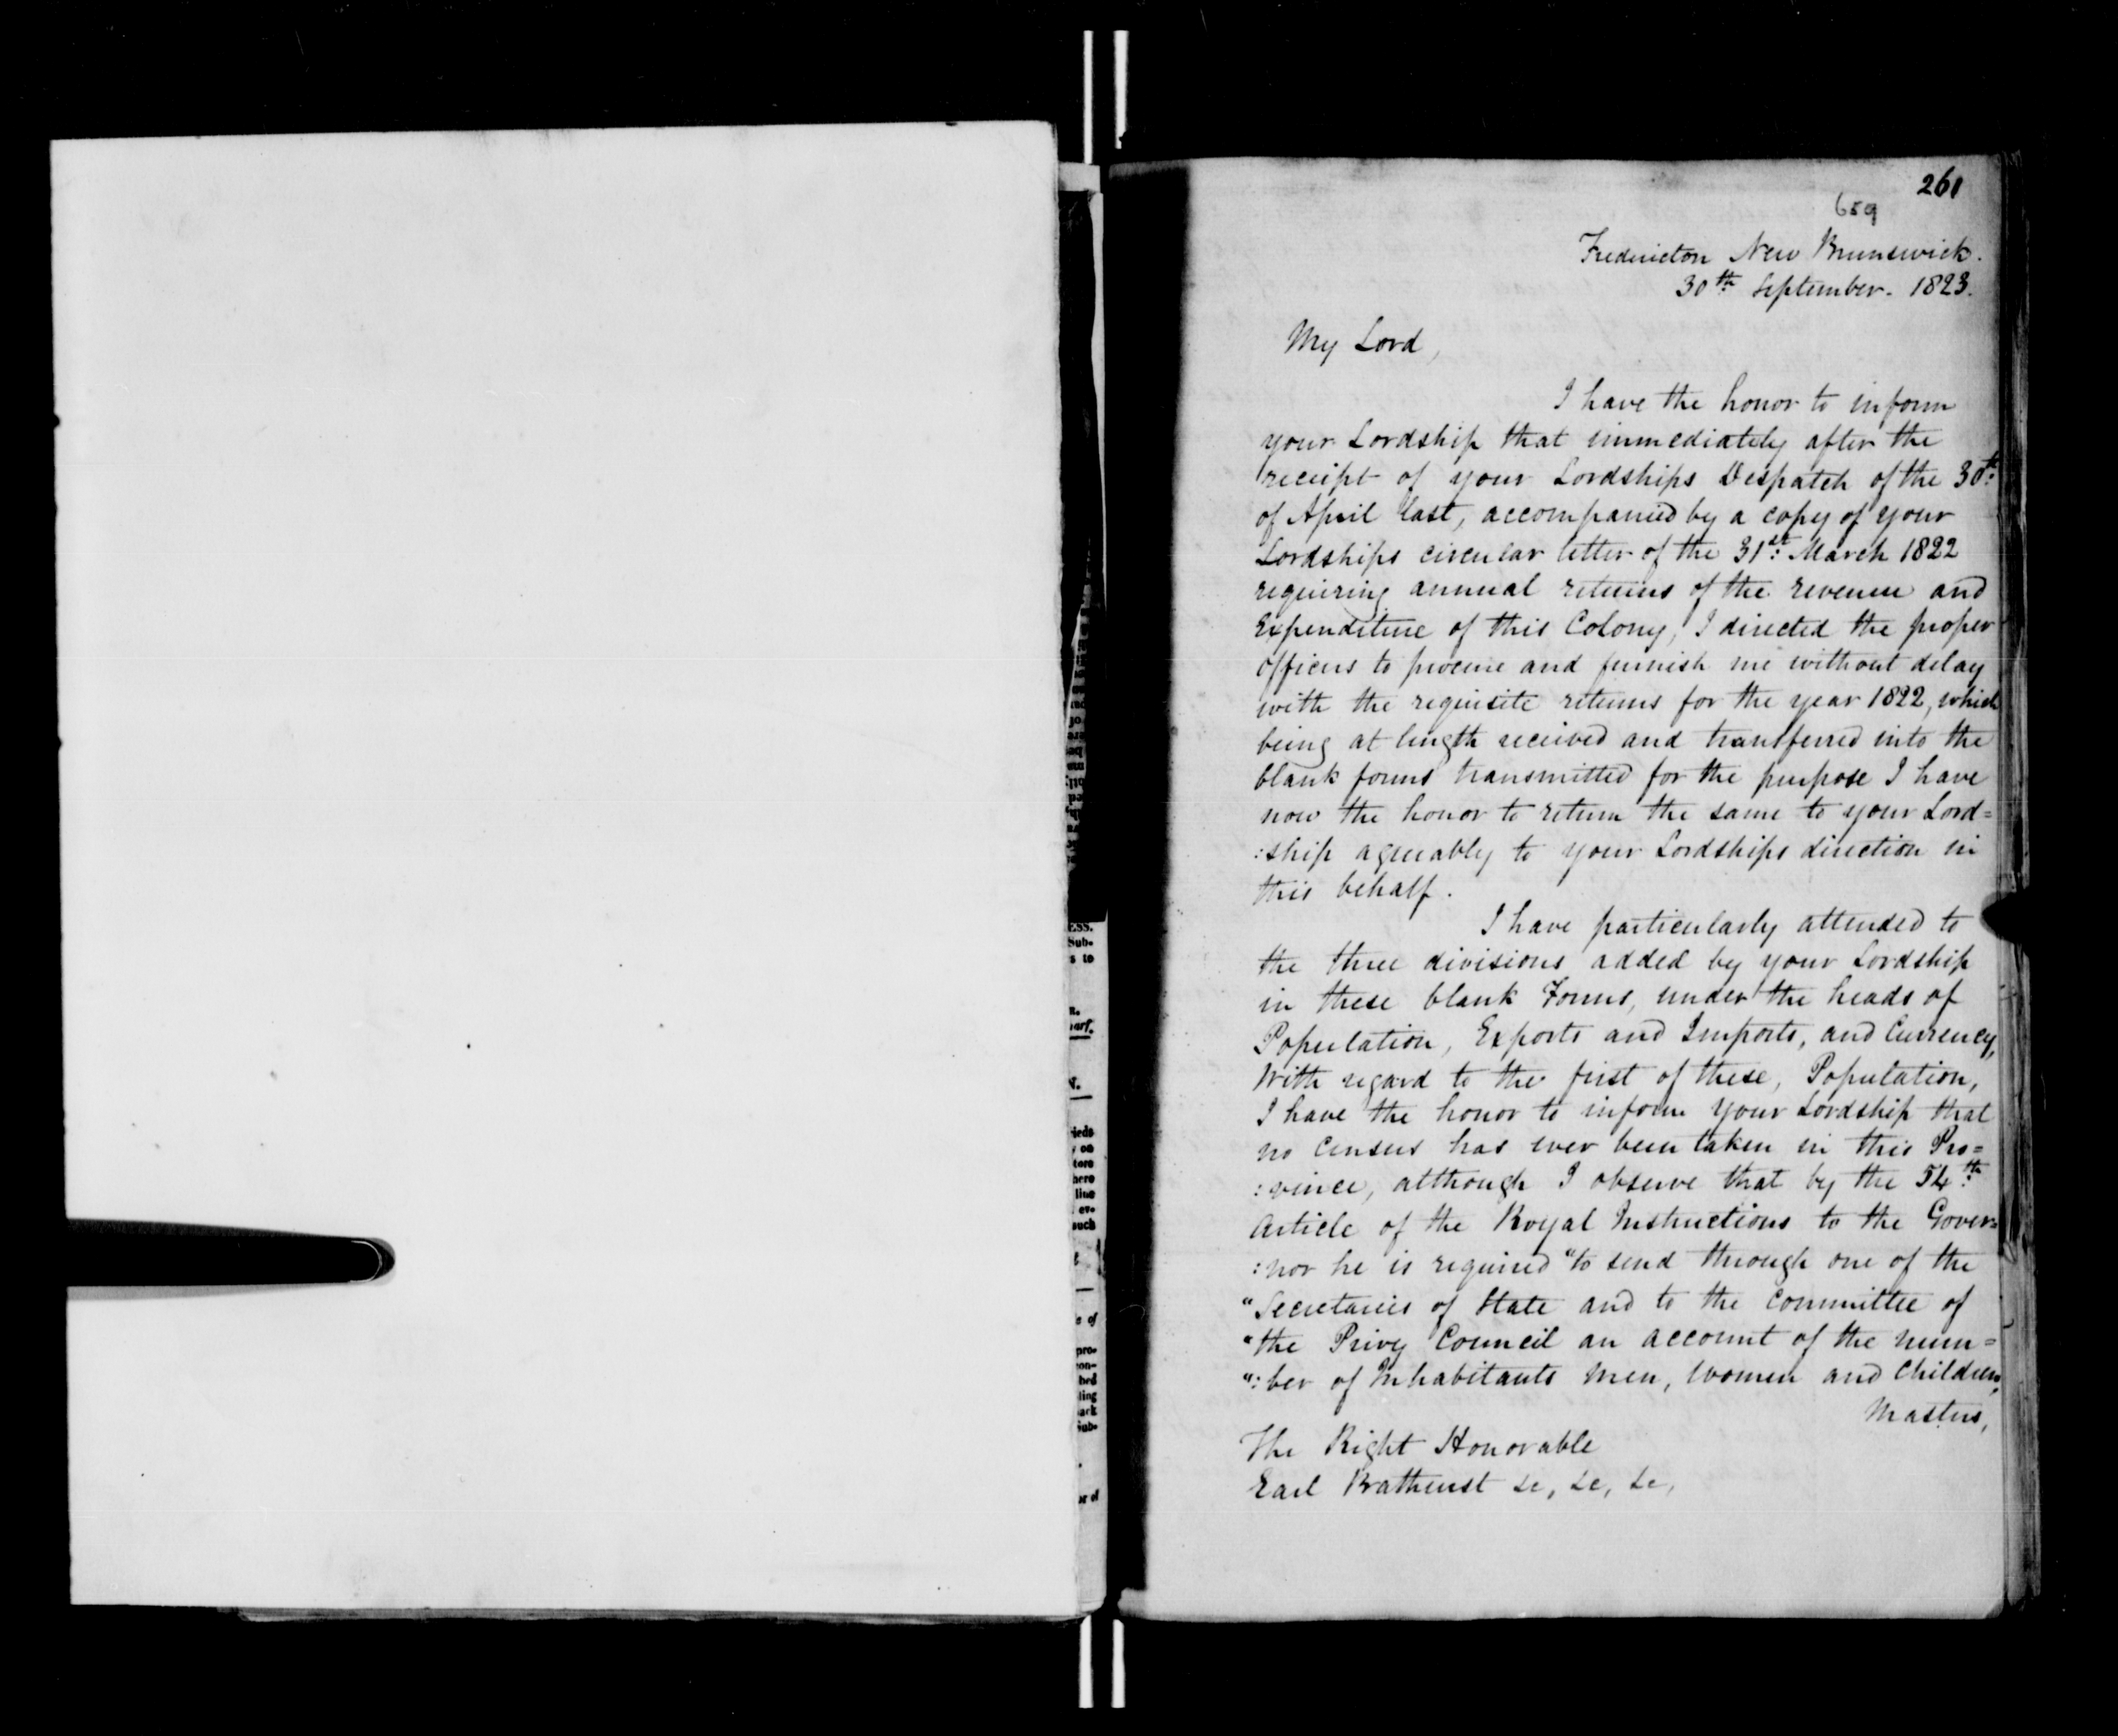 261
659
Fredericton New Brunswick.
30th September. 1823.
My Lord,
I have the honor to inform
your Lordship that immediately after the
receipt of your Lordships Despatch of the 30th
of April last, accompanied by a copy of your
Lordships circular letter of the 31st March 1822
requiring annual returns of the revenue and
Expenditure of this Colony, I directed the proper
officers to procure and furnish me without delay
with the requisite returns for the year 1822, which
being at length received and transferred into the
blank forms transmitted for the purpose I have
now the honor to return the same to your Lord=
:ship agreeably to your Lordships direction in
this behalf.
I have particularly attended to
the three divisions added by your Lordship
in these blank Forms, under the heads of
Population, Exports and Imports, and Currency,
With regard to the first of these, Population,
I have the honor to inform your Lordship that
no Census has ever been taken in this Pro=
:vince, although I observe that by the 54th
Article of the Royal Instructions to the Gover=
:nor he is required "to send through one of the
"Secretaries of State and to the Committee of
"the Privy Council an account of the num=
":ber of Inhabitants Men, Women and Children,
Masters,
The Right Honorable
Earl Bathurst &c, &c, &c,
ESS.
Sub-
s to
n.
arf.
N.
on
tore
here
line
ev-
such
of
pro-
con-
bed
ling
ark
Sub-
or of